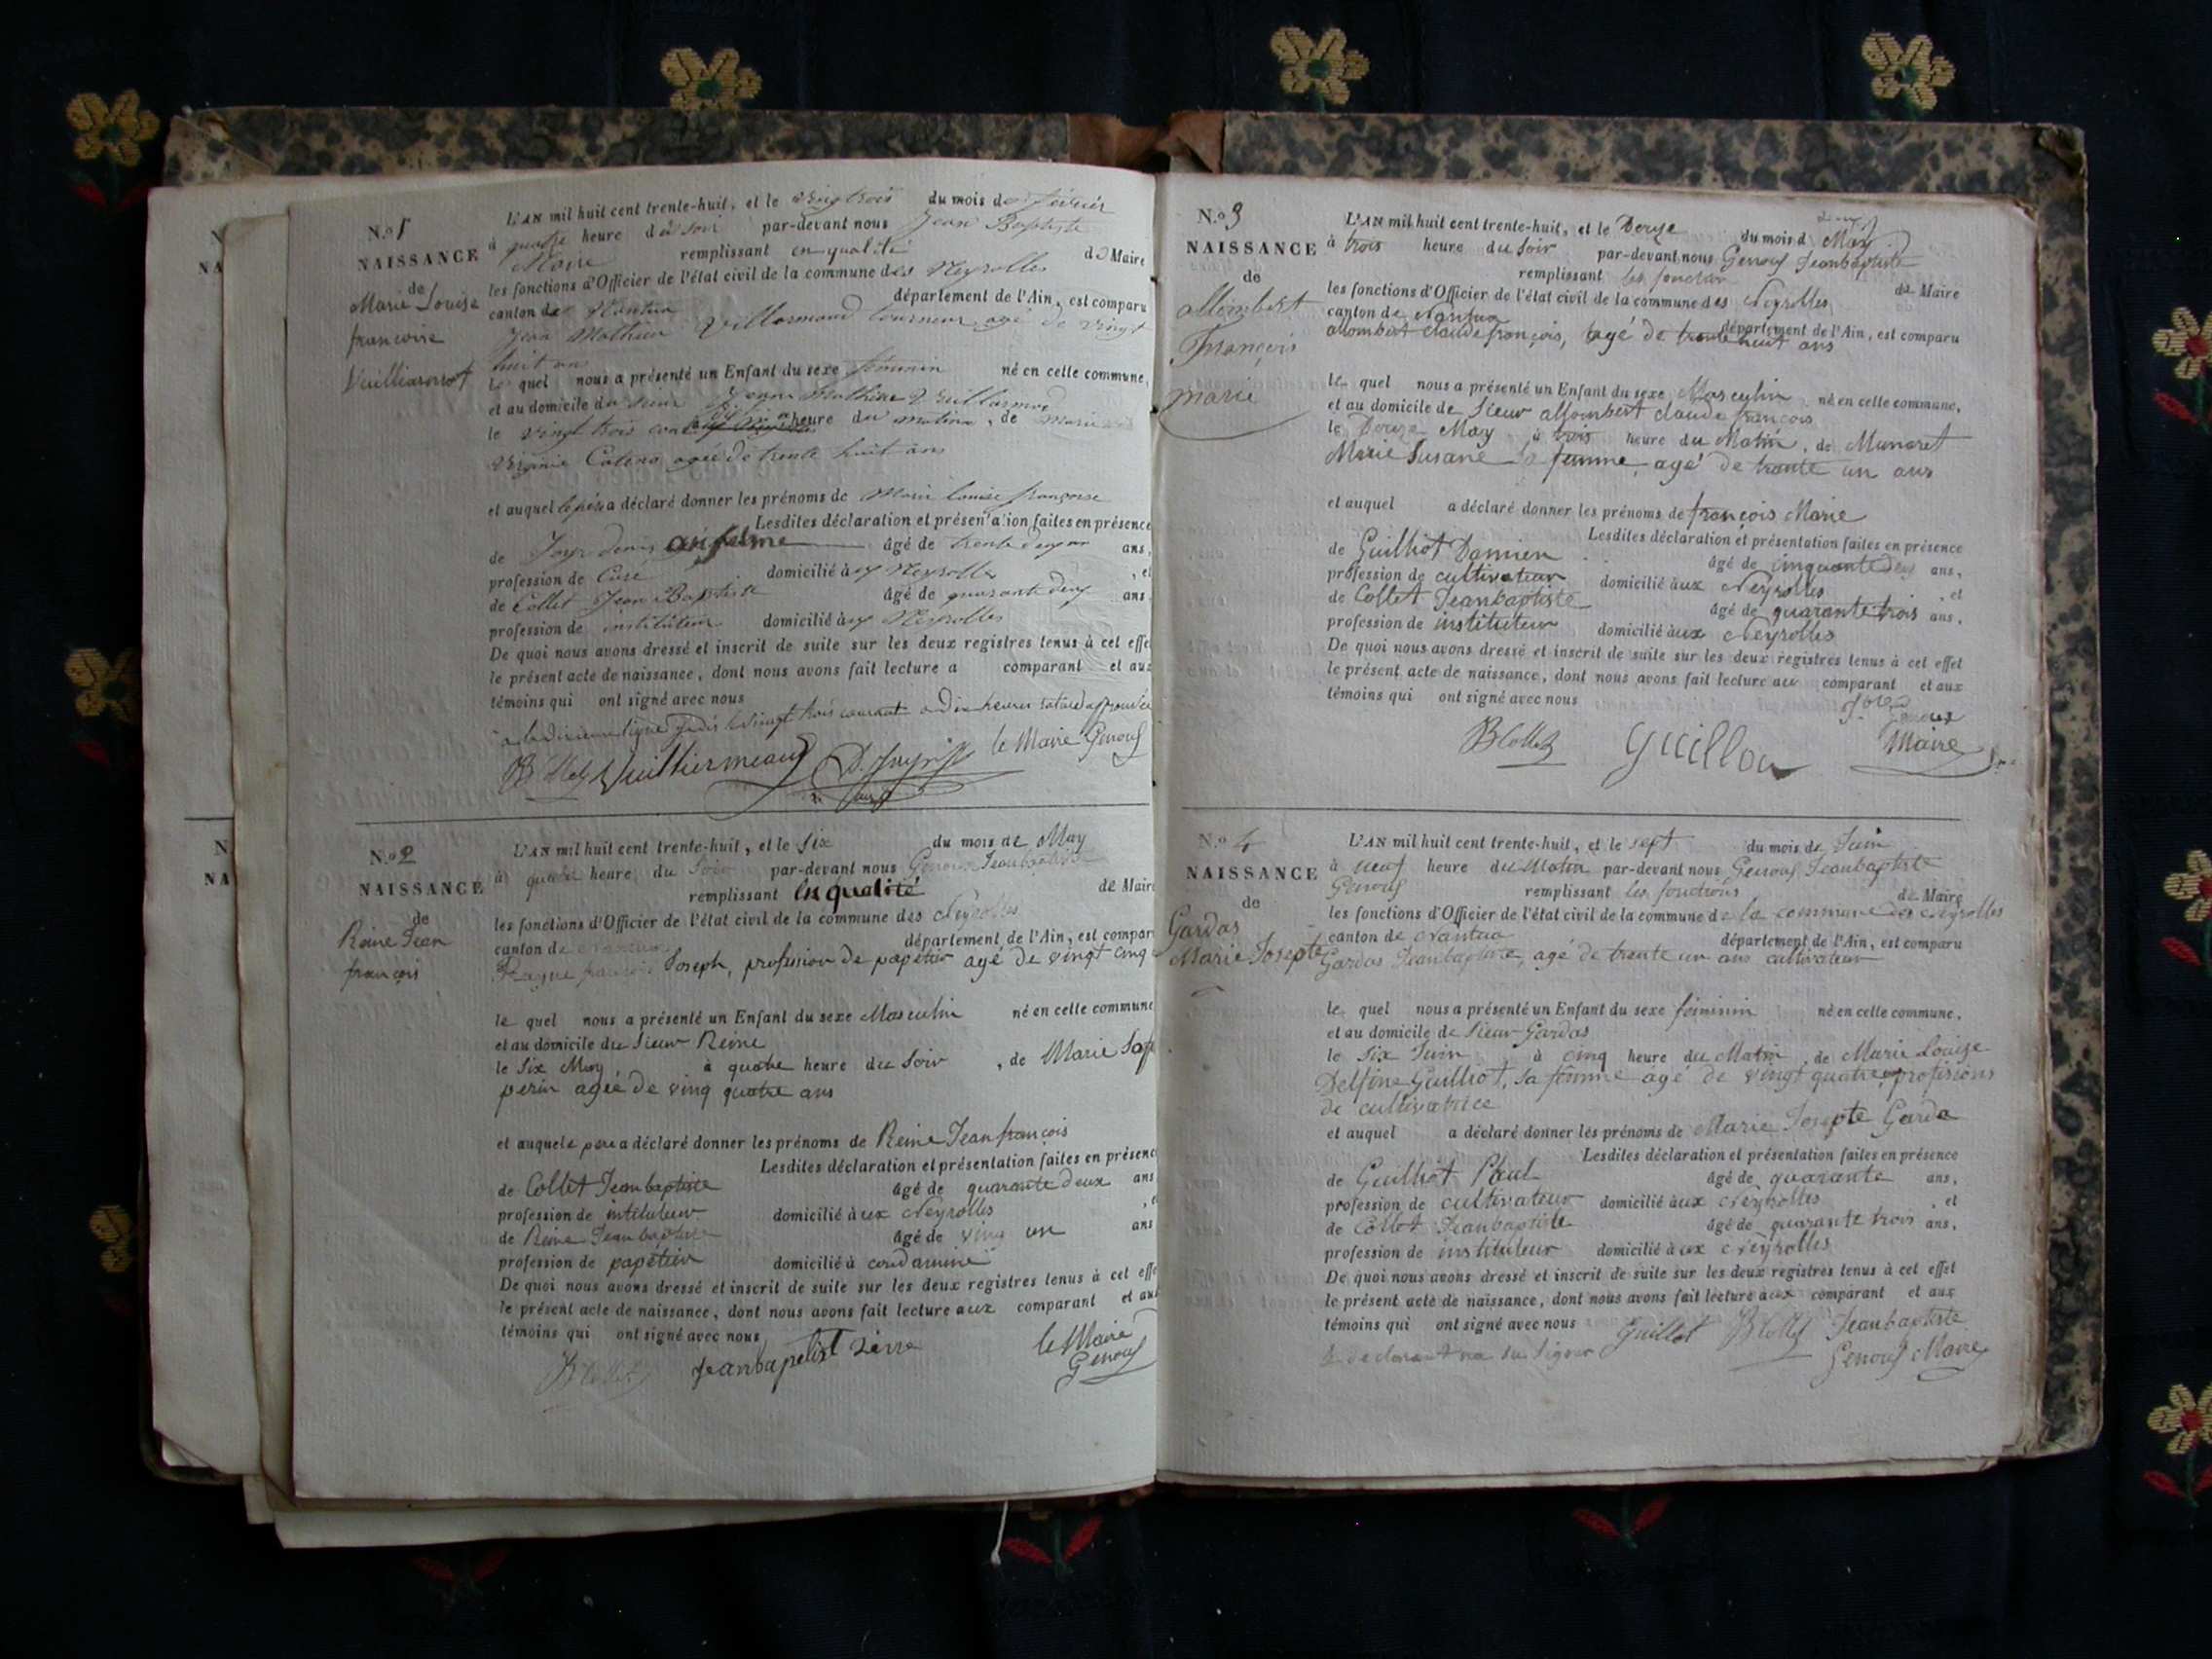 N
NA
N
NA
N.o 1
NAISSANCE
de
Marie Louise
francoise
Vuilliarmot
L'AN mil huit cent trente-huit, et le vingt trois du mois de février
à quatre heure du soir par-devant nous Jean Baptiste
Maire remplissant en qualité de Maire
les fonctions d'Officier de l'état civil de la commune des Neyrolles
canton de Nantua département de l'Ain, est comparu
Jean Mathieu tourneur agé de vingt
huit an
le quel nous a présenté un Enfant du sexe féminin né en celle commune,
et au domicile du sieur
le vingt trois heure du matin, de marie
Virginie agée de trente huit ans
et auquel le père a déclaré donner les prénoms de Marie louise françoise
Lesdites déclaration et présentation faites en présence
de denis anselme âgé de trente ans,
profession de Curé domicilié à ux Neyrolles , et
de Collet Jean Baptiste âgé de quarante deux ans
profession de instituteur domicilié à ux Neyrolles
De quoi nous avons dressé et inscrit de suite sur les deux registres tenus à cet effet
le présent acte de naissance, dont nous avons fait lecture a comparant et aux
témoins qui ont signé avec nous
vingt trois courant a dix heures approuvée
BCollet Vuilliermeaux le Maire Genoux
N.o 2
NAISSANCE
de
Reine Jean
françois
L'AN mil huit cent trente-huit, et le six du mois de May
à quatre heure du Soir par-devant nous Genoux Jeanbaptiste
remplissant en qualité de Maire
les fonctions d'Officier de l'état civil de la commune des Neyrolles
canton de Nantua département de l'Ain, est comparu
Joseph, profession de papetier agé de vingt cinq
le quel nous a présenté un Enfant du sexe Masculin né en celle commune
et au domicile du Sieur Reine
le Six May à quatre heure du Soir , de Marie
perin agée de ving quatre ans
et auquel le pere a déclaré donner les prénoms de Reine Jean françois
Lesdites déclaration et présentation faites en présence
de Collet Jeanbaptiste âgé de quarante deux ans
profession de intituteur domicilié à ux Neyrolles , et
de Reine Jeanbaptiste âgé de ving un ans
profession de papetier domicilié à condamine
De quoi nous avons dressé et inscrit de suite sur les deux registres tenus à cet effet
le présent acte de naissance, dont nous avons fait lecture aux comparant et aux
témoins qui ont signé avec nous
BCollet le Maire
Genoux
N.o 3
NAISSANCE
de
Allombert
François
marie
L'AN mil huit cent trente-huit, et le Douze du mois d May
à trois heure du Soir par-devant nous Genoux Jeanbaptiste
remplissant les fonction de Maire
les fonctions d'Officier de l'état civil de la commune des Neyrolles
canton de Nantua département de l'Ain, est comparu
allombert claude françois, agé de trente huit ans
le quel nous a présenté un Enfant du sexe Masculin né en celle commune,
et au domicile de Sieur allombert claude francois
le Douze May à trois heure du Matin, de Munaret
Marie Susane Sa femme agé de trante un ans
et auquel a déclaré donner les prénoms de françois Marie
Lesdites déclaration et présentation faites en présence
de Guilliot Damien âgé de cinquante deux ans,
profession de cultivateur domicilié à ux Neyrolles , et
de Collet Jeanbaptiste âgé de quarante trois ans,
profession de instituteur domicilié à ux Neyrolles
De quoi nous avons dressé et inscrit de suite sur les deux registres tenus à cet effet
le présent acte de naissance, dont nous avons fait lecture au comparant et aux
témoins qui ont signé avec nous
Genoux
BCollet Guillou Maire
N.o 4
NAISSANCE
de
Gardas
Marie Josepte
L'AN mil huit cent trente-huit, et le sept du mois de Juin
à neuf heure du Matin par-devant nous Genoux Jeanbaptiste
Genoux remplissant les fonctions de Maire
les fonctions d'Officier de l'état civil de la commune de la commune des Neyrolles
canton de Nantua département de l'Ain, est comparu
Gardas Jeanbaptiste, agé de trente un ans cultivateur
le quel nous a présenté un Enfant du sexe féminin né en celle commune,
et au domicile de Sieur Gardas
le Six Juin à cinq heure du Matin, de Marie Louise
Delfine Guilliot, Sa fémme agé de vingt quatre profisions
de cultivatrice
et auquel a déclaré donner les prénoms de Marie Josepte Garda
Lesdites déclaration et présentation faites en présence
de Guilliot Paul âgé de quarante ans,
profession de cultivateur domicilié à ux Neyrolles , et
de Collet Jeanbaptiste âgé de quarante trois ans,
profession de instituteur domicilié à ux Neyrolles
De quoi nous avons dressé et inscrit de suite sur les deux registres tenus à cet effet
le présent acte de naissance, dont nous avons fait lecture aux comparant et aux
témoins qui ont signé avec nous Guillot BCollet Jeanbaptiste
Le declarant na su signer Genoux Maire